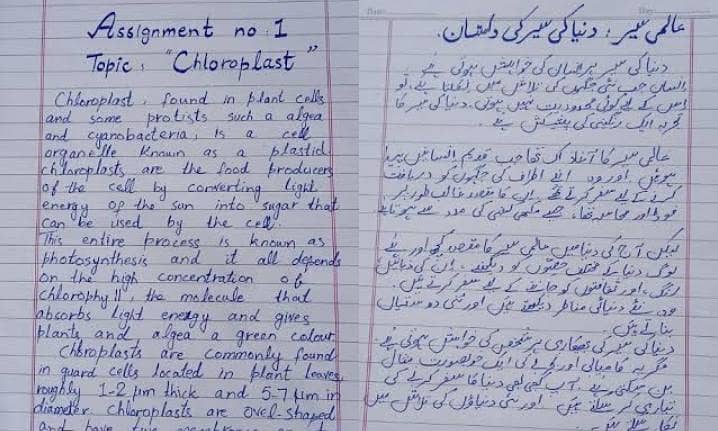 Assignment no : 1
Topic : "Chloroplast"
Chloroplast, found in plant cells
and some protists such a algea
and cyanobacteria, is a cell
organelle known as a plastid
chloroplasts are the food producers
of the cell by converting light
energy of the sun into sugar that
can be used by the cell.
This entire process is known as
photosynthesis and it all depends
on the high concentration of
chlorophyll, the molecule that
absorbs light energy and gives
plants and algea a green colour
Chloroplasts are commonly found
in guard cells located in plant leaves
roughly 1-2 µm thick and 5-7 µm in
diameter chloroplasts are ovel-shaped
and have two
عالمی سیر: دنیا کی سیر کی داستان.
دنیا کی سیر ہر انسان کی خواہش ہوتی ہے۔
انسان جب نئی جگہوں کی تلاش میں نکلتا ہے، تو
اس کے لیے کوئی محدودیت نہیں ہوتی. دنیا کی سیر کا
تجربہ ایک رنگینی کی پیشکش ہے۔
عالمی سیر کا آغاز اک تھا جب قدیم انسانیں پیدا
ہوئیں اور وہ اپنے اطراف کی جگہوں کو دریافت
کرنے کے لیے سفر کرتے تھے۔ ان کا مقصد غالب طور پر
تھا، جیسے کی مدد سے
لیکن آج کی دنیا میں عالمی سیر کا مقصد کچھ اور ہے
لوگ دنیا کے مختلف کو دیکھنے، ان کی
اور ثقافتوں کو جاننے کے لیے سفر کرتے ہیں.
وہ نئے دنیائی مناظر دیکھتے ہیں اور نئی دوستیاں
بناتے ہیں.
دنیا کی سیر کی ہر شخص کی خواہش ہوتی ہے.
کامیابی اور کی ایک خوبصورت مثال
بن سکتی ہے. آپ بھی دنیا کا سفر کرنے کی
تیاری کر سکتے ہیں اور نئی دنیاؤں کی تلاش میں
نکل سکتے ہیں.